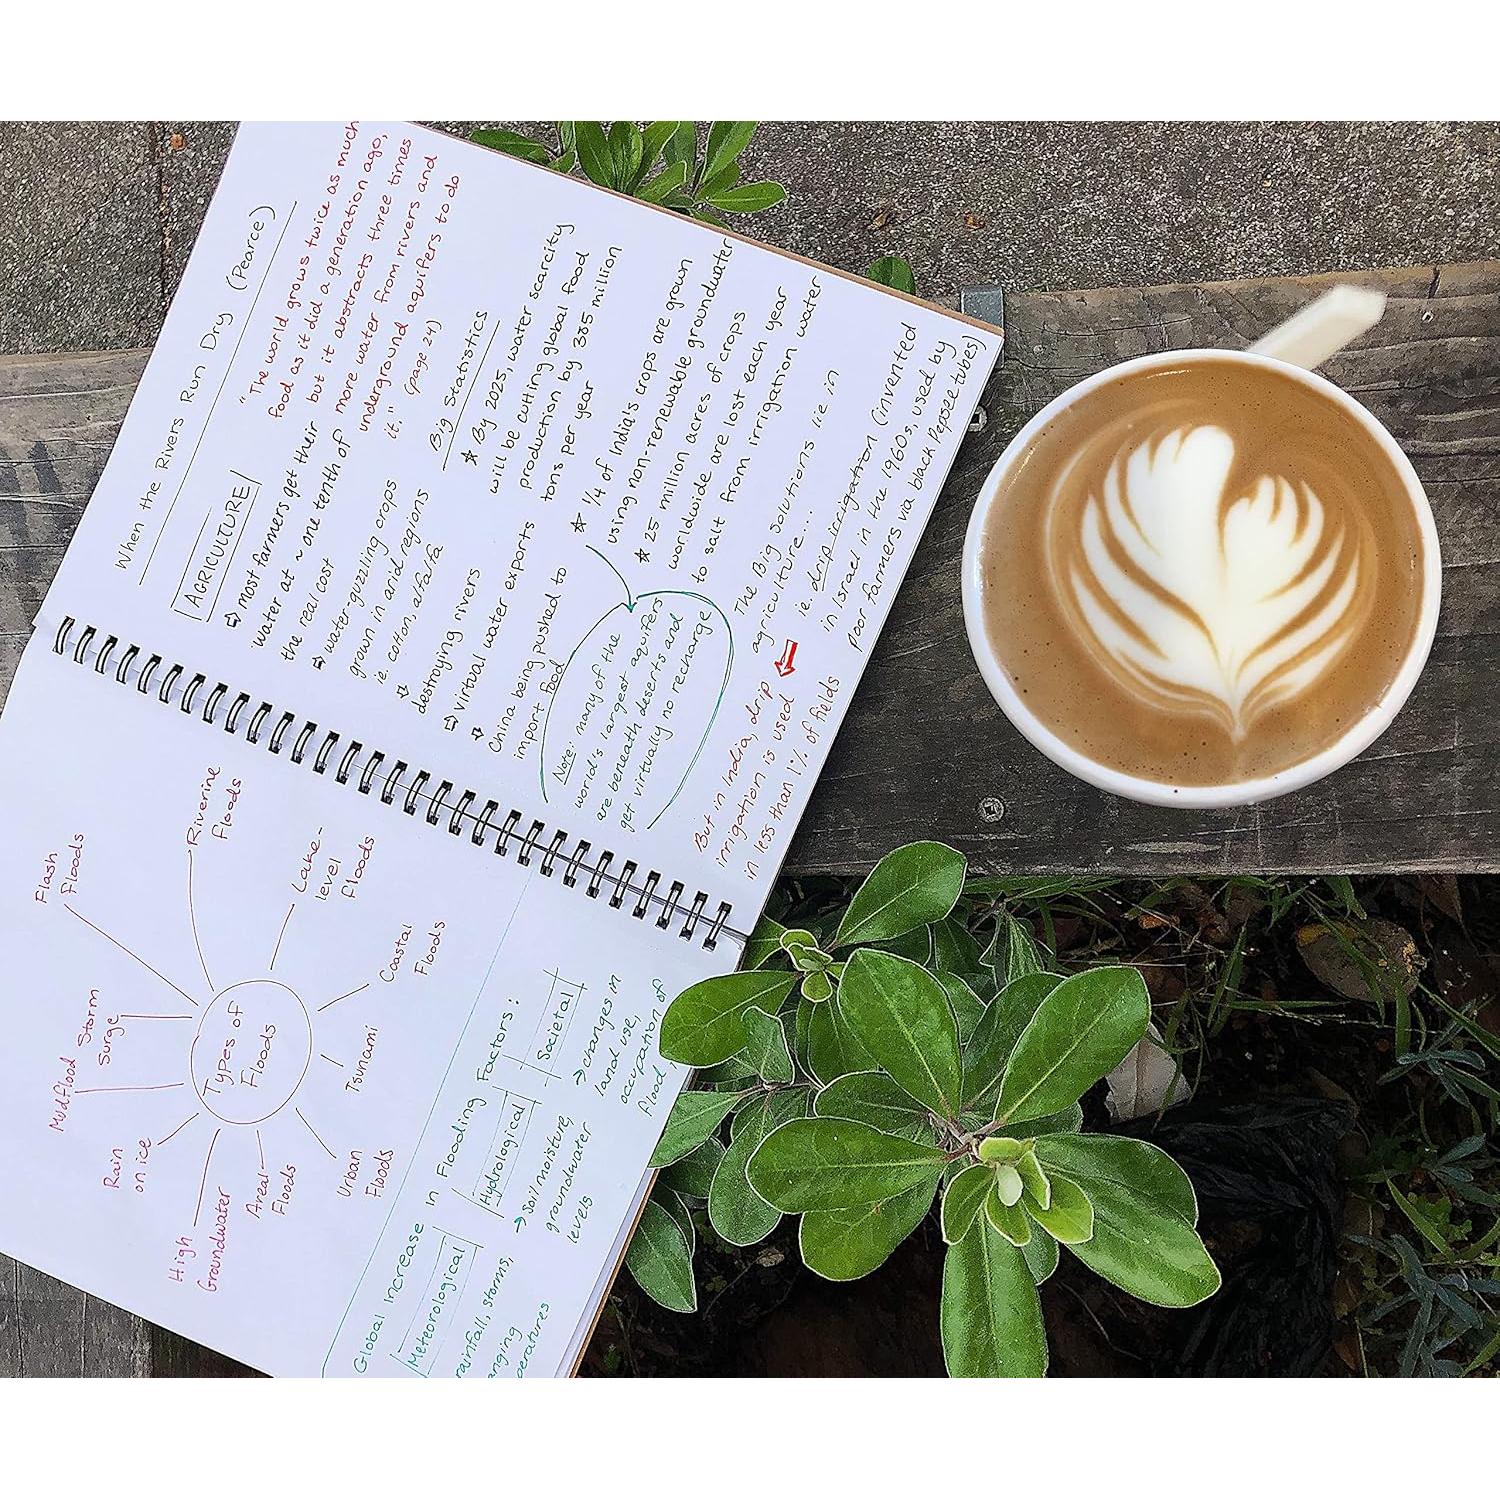 When the Rivers Run Dry (Pearce)
AGRICULTURE
⇨ most farmers get their
water at ~ one tenth of
the real cost
⇨ water-guzzling crops
grown in arid regions
ie. cotton, alfalfa
⇨
destroying rivers
⇨ virtual water exports
⇨
China being pushed to
import food
"The world grows twice as much
food as it did a generation ago,
but it abstracts three times
more water from rivers and
underground aquifers to do
it." (page 24)
Big Statistics
☆ By 2025, water scarcity
will be cutting global food
production by 385 million
tons per year
☆ 1/4 of India's crops are grown
using non-renewable groundwater
☆ 25 million acres of crops
worldwide are lost each year
to salt from irrigation water
Note: many of the
world's largest aquifers
are beneath deserts and
get virtually no recharge
The Big Solutions lie in
agriculture...
ie. drip irrigation (invented
in Israel in the 1960s, used by
poor farmers via black Pepsee tubes)
But in India, drip
irrigation is used
in less than 1% of fields
Types of
Floods
Flash
Floods
Riverine
Floods
Lake-
level
floods
Coastal
Floods
Tsunami
Urban
Floods
Areal
Floods
High
Groundwater
Rain
on ice
Mudflood
Storm
Surge
Global Increase in Flooding Factors:
Meteorological
rainfall, storms,
Hydrological
→ Soil moisture,
groundwater
levels
Societal
→ changes in
land use,
occupation of
flood